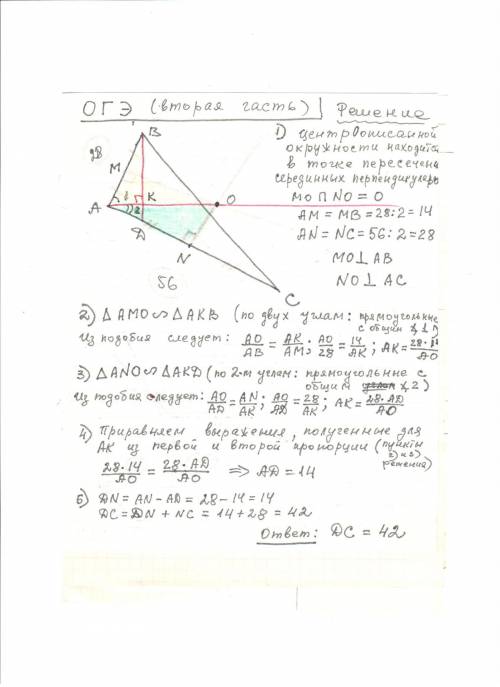 ОГЭ (вторая часть) | Решение
1) Центр описанной
окружности находится
в точке пересечения
серединных перпендикуляров
MO ∩ NO = O
AM = MB = 28:2 = 14
AN = NC = 56:2 = 28
MO ⊥ AB
NO ⊥ AC
B
28
M
A
1
K
2
O
D
N
56
C
2) △AMO ∽ △AKB (по двум углам: прямоугольные
с общим ∠1)
Из подобия следует: AO/AB = AK/AM; AO/28 = 14/AK; AK = 28·14/AO
3) △ANO ∽ △AKD (по 2-м углам: прямоугольные с
общим ∠2)
Из подобия следует: AO/AD = AN/AK; AO/AD = 28/AK; AK = 28·AD/AO
4) Приравняем выражения, полученные для
AK из первой и второй пропорции (пункты
2) и 3)
решения)
28·14/AO = 28·AD/AO ⇒ AD = 14
5) DN = AN − AD = 28 − 14 = 14
DC = DN + NC = 14 + 28 = 42
Ответ: DC = 42